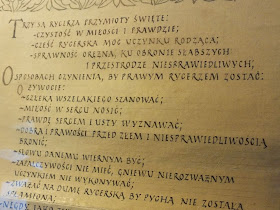 TRZY SĄ RYCERZA PRZYMIOTY ŚWIĘTE:
-CZYSTOŚĆ W MIŁOŚCI I PRAWDZIE;
-CZEŚĆ RYCERSKA MOC UCZYNKU RODZĄCA;
-SPRAWNOŚĆ ORĘŻNA, KU OBRONIE SŁABSZYCH
I PRZESTRODZE NIESPRAWIEDLIWYCH,
O SPOSOBACH CZYNIENIA, BY PRAWYM RYCERZEM ZOSTAĆ:
O ŻYWOCIE:
-CZŁEKA WSZELAKIEGO SZANOWAĆ;
-MIŁOŚĆ W SERCU NOSIĆ;
-PRAWDĘ SERCEM I USTY WYZNAWAĆ;
-DOBRA I PRAWOŚCI PRZED ZŁEM I NIESPRAWIEDLIWOŚCIĄ
BRONIĆ;
-SŁOWU DANEMU WIERNYM BYĆ;
-ZAPALCZYWOŚCI NIE MIEĆ, GNIEWU NIEROZWAŻNYM
UCZYNKIEM NIE WYKONYWAĆ;
-ZWAŻAĆ NA DUMĘ RYCERSKĄ BY PYCHĄ NIE ZOSTAŁA
-NIGDY